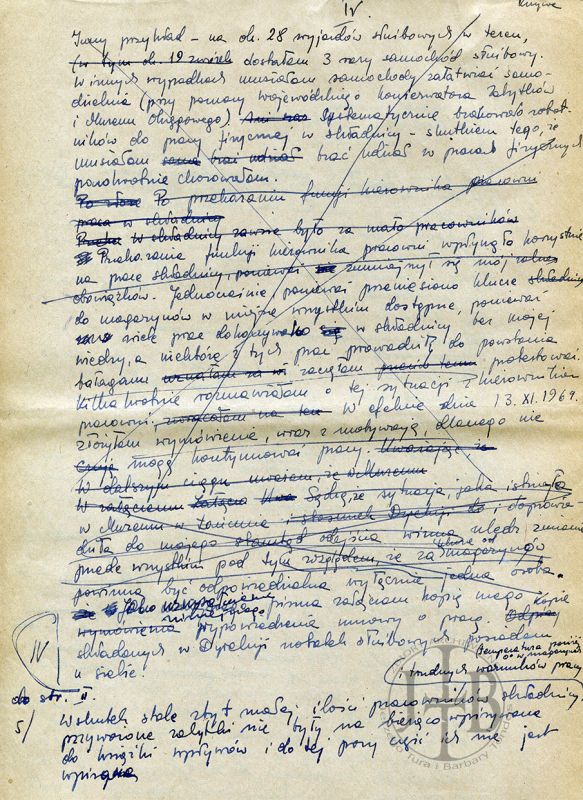 IV
Inny przykład - na ok. 28 wyjazdów służbowych w teren,
(w tym ok. 12 dostałam 3 razy samochód służbowy.
W innych wypadkach musiałam samochody załatwiać samo-
dzielnie (przy pomocy Wojewódzkiego Konserwatora Zabytków
i Muzeum Okręgowego) Systematycznie brakowało robot-
ników do pracy fizycznej w składnicy - skutkiem tego, że
musiałam brać udział w pracach fizycznych
parokrotnie chorowałam.
Po Po przekazaniu funkcji kierownika pracowni
praca w składnicy
w składnicy zawsze było za mało pracowników
Przekazanie funkcji kierownika pracowni wpłynęło korzystnie
na pracę składnicy, ponieważ zmniejszył się mój zakres
obowiązków. Jednocześnie ponieważ przeniesiono klucze składnicy
do magazynów w miejsce wszystkim dostępne, ponieważ
wiele prac dokonywało się w składnicy bez mojej
wiedzy, a niektóre z tych prac prowadziły do powstania
bałaganu zaczęłam protestować
Kilkakrotnie rozmawiałam o tej sytuacji z kierownikiem
pracowni, W efekcie dnia 13. XI. 1969.
złożyłam wymówienie, wraz z motywacją, dlaczego nie
mogę kontynuować pracy. Uważając że
W dalszym ciągu uważam, że w Muzeum
W załączeniu Sądzę, że sytuacja jaka istniała
w Muzeum w i stosunek Dyrekcji do i doprowa
dziła do mojego odejścia winna ulec zmianie
przede wszystkim pod tym względem, że za klucze od magazynów
powinna być odpowiedzialna wyłącznie jedna osoba.
Jako niniejszego pisma załączam kopię mego
wymówienia wypowiedzenia umowy o pracę. Kopie
składanych w Dyrekcji notatek służbowych posiadam
u siebie.
temperatura poniżej
0° w magazynach
i trudnych warunków pracy
IV
do str. II.
5/ Wskutek stale zbyt małej ilości pracowników składnicy
przywożone zabytki nie były na bieżąco wpisywane
do księgi wpływów i do tej pory część ich nie jest
wpisana